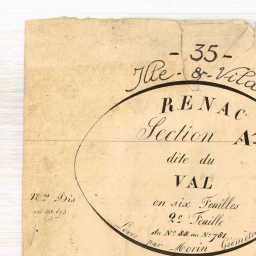 - 35 -
Ille-&-Vila
RENAC
Section A
dite du
VAL
en six Feuilles
2e Feuille
du No 88 au No 781.
Levé par Morin Géomètre